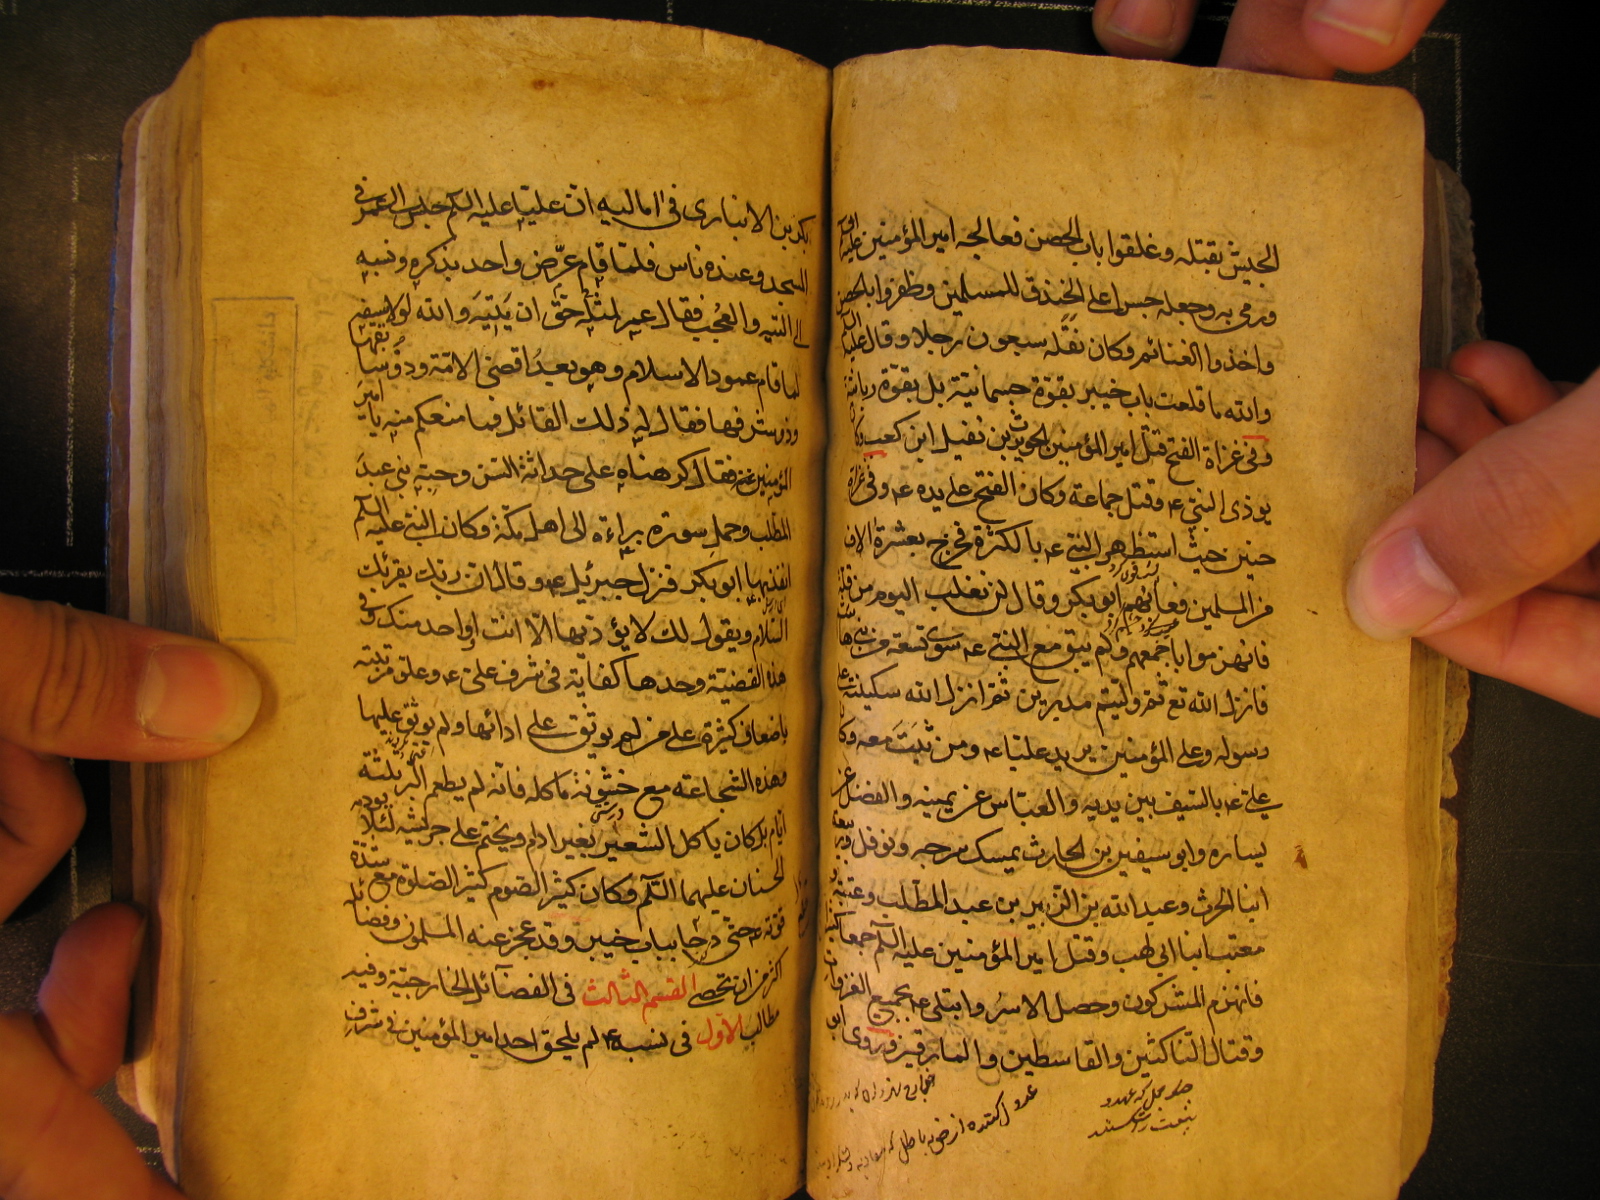 الجيش بقتله وغلقوا باب الحصن فعالجه امير المؤمنين عليه
ورمى به وجعله جسرا على الخندق للمسلمين وظفروا بالحصن
واخذوا الغنائم وكان نقله سبعون رجلا وقال عليه السلم
والله ما قلعت باب خيبر بقوة جسمانية بل بقوة ربانية
وفى غزاة الفتح قتل امير المؤمنين الحويرث بن نفيل ابن كعب وكا
يوذى النبي ع‍ وقتل جماعة وكان الفتح على يده ع‍ وفى غزاة
حنين حيث استظهر النبي ع‍ بالكثرة فخرج بعشرة الاف
من المسلمين فعانهم ابو بكر وقال لن نغلب اليوم من قلة
فانهزموا باجمعهم ولم يبق مع النبي ع‍ سوى تسعة من بنى هاشم
فانزل الله تع ثم وليتم مدبرين ثم انزل الله سكينته على
رسوله وعلى المؤمنين يريد عليا ع‍ ومن ثبت معه وكا
على ع‍ بالسيف بين يديه والعباس عن يمينه والفضل عن
يساره وابو سفين بن الحارث يمسك سرجه ونوفل وربيعة
ابنا الحرث وعبد الله بن الزبير بن عبد المطلب وعتبة
معتب ابنا ابى لهب وقتل امير المؤمنين عليه السلم جمعا
فانهزم المشركون وحصل الاسر وابتلى ع‍ بجميع الغزوات
وقتال الناكثين والقاسطين والمارقين وروى ابو
جمل كه عهد و
بيعت را شكستند
عدول كننده از حق به باطل كه معاويه
بكر بن الانبارى فى اماليه ان عليا عليه السلم جلس الى عمر فى
المسجد وعنده ناس فلما قام عرض واحد بذكره ونسبه
الى التيه والعجب فقال عمر لمثله حق ان يتيه والله لولا سيفه
لما قام عمود الاسلام وهو بعد اقضى الامة وذو سابقتها
وذو شرفها فقال له ذلك القائل فما منعكم منه يا امير
المؤمنين عنه فقال كرهناه على حداثة السن وحبه بنى عبد
المطلب وحمل سورة براءة الى اهل مكة وكان النبي عليه السلم
انفذ بها ابو بكر فنزل جبرئيل ع‍ وقال ان ربك يقرئك
السلام ويقول لك لا يؤديها الا انت او واحد منك وفى
هذه القضية وحدها كفاية فى شرف على ع‍ وعلو مرتبته
باضعاف كثيرة على من لم يوثق على ادائها ولم يوثق عليها
وهذه الشجاعة مع خشونة ماكله فانه لم يطعم البر ثلثة
ايام بل كان ياكل الشعير بغير ادام ويختم على جريشه لئلا يودمه
الحسنان عليهما السلم وكان كثير الصوم كثير الصلوة مع شدة
قوته ع‍ حتى دحا بباب خيبر وقد عجز عنه المسلمون وفضائله
اكثر من ان تحصى القسم الثالث فى الفضائل الخارجية وفيه
مطالب الاول فى نسبه ع‍ لم يلحق احد امير المؤمنين فى شرف